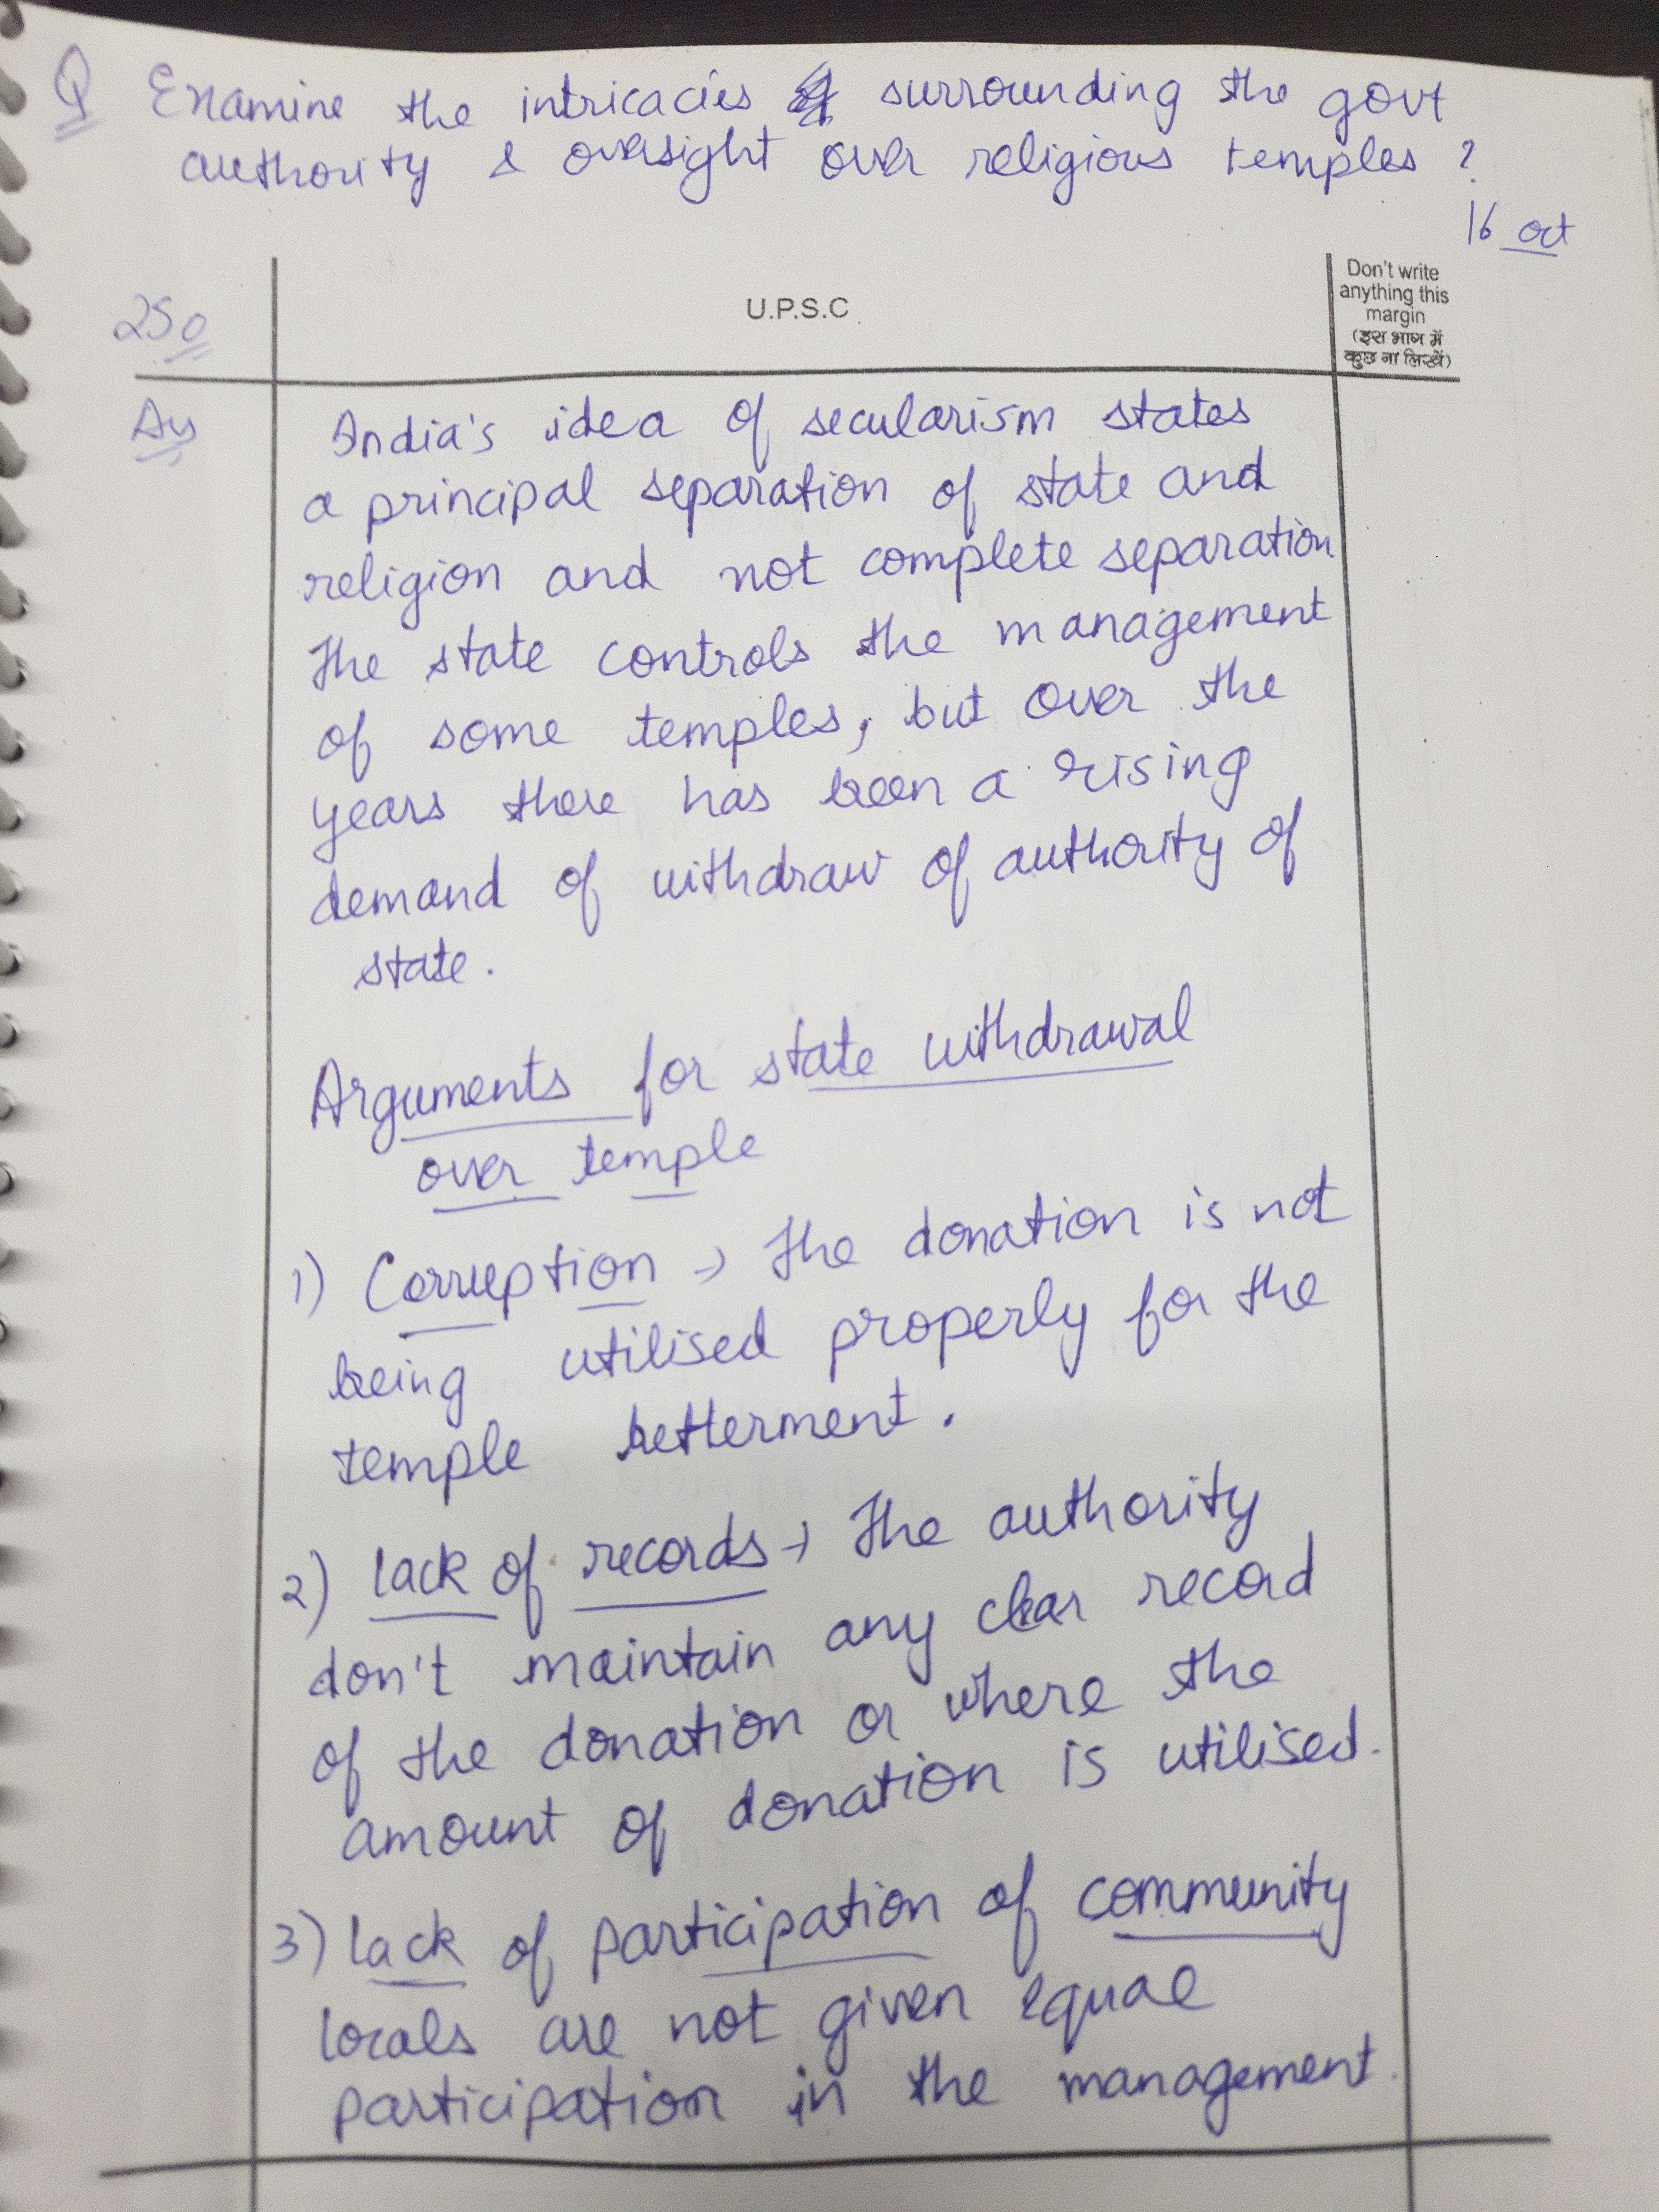 Q Examine the intricacies surrounding the govt
authority & oversight over religious temples ?
16 oct
250
U.P.S.C
Don't write
anything this
margin
(इस भाग में
कुछ ना लिखें)
India's idea of secularism states
a principal separation of state and
religion and not complete separation
The state controls the management
of some temples, but over the
years there has been a rising
demand of withdraw of authority of
state.
Arguments for state withdrawal
over temple
1) Corruption → The donation is not
being utilised properly for the
temple betterment.
2) lack of records → The authority
don't maintain any clear record
of the donation or where the
amount of donation is utilised.
3) lack of participation of community
locals are not given equal
participation in the management.